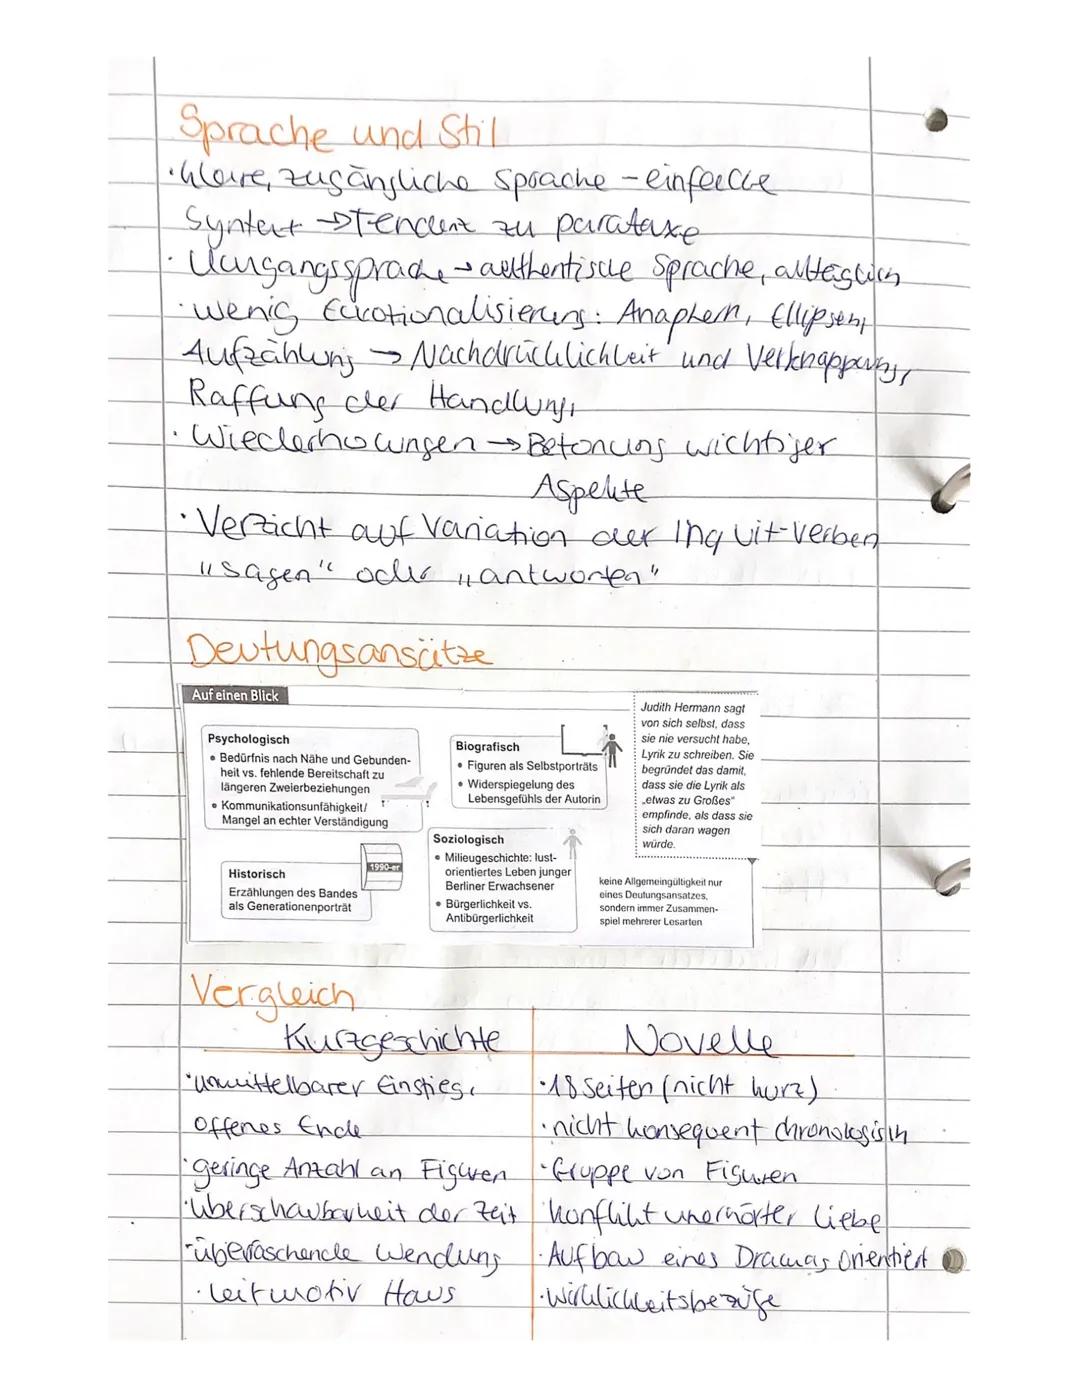 Sprache und Stil
· klare, zugängliche Sprache – einfache
Syntax → Tendenz zu Parataxe
· Umgangssprache → authentische Sprache, alltäglich
· wenig Emotionalisierung: Anaphern, Ellipsen,
Aufzählung → Nachdrücklichkeit und Verknappung,
Raffung der Handlung,
· Wiederholungen → Betonung wichtiger
Aspekte
· Verzicht auf Variation der Inquit-Verben
„sagen“ oder „antworten“
Deutungsansätze
Auf einen Blick
Psychologisch
• Bedürfnis nach Nähe und Gebunden-
heit vs. fehlende Bereitschaft zu
längeren Zweierbeziehungen
• Kommunikationsunfähigkeit/
Mangel an echter Verständigung
Biografisch
• Figuren als Selbstporträts
• Widerspiegelung des
Lebensgefühls der Autorin
Judith Hermann sagt
von sich selbst, dass
sie nie versucht habe,
Lyrik zu schreiben. Sie
begründet das damit,
dass sie die Lyrik als
„etwas zu Großes“
empfinde, als dass sie
sich daran wagen
würde.
Historisch
Erzählungen des Bandes
als Generationenporträt
1990-er
Soziologisch
• Milieugeschichte: lust-
orientiertes Leben junger
Berliner Erwachsener
• Bürgerlichkeit vs.
Antibürgerlichkeit
keine Allgemeingültigkeit nur
eines Deutungsansatzes,
sondern immer Zusammen-
spiel mehrerer Lesarten
Vergleich
Kurzgeschichte
· unmittelbarer Einstieg,
offenes Ende
· geringe Anzahl an Figuren
· Überschaubarkeit der Zeit
· überraschende Wendung
· Leitmotiv Haus
Novelle
· 18 Seiten (nicht kurz)
· nicht konsequent chronologisch
· Gruppe von Figuren
Konflikt unerhörter Liebe
· Aufbau eines Dramas orientiert
· Wirklichkeitsbezüge